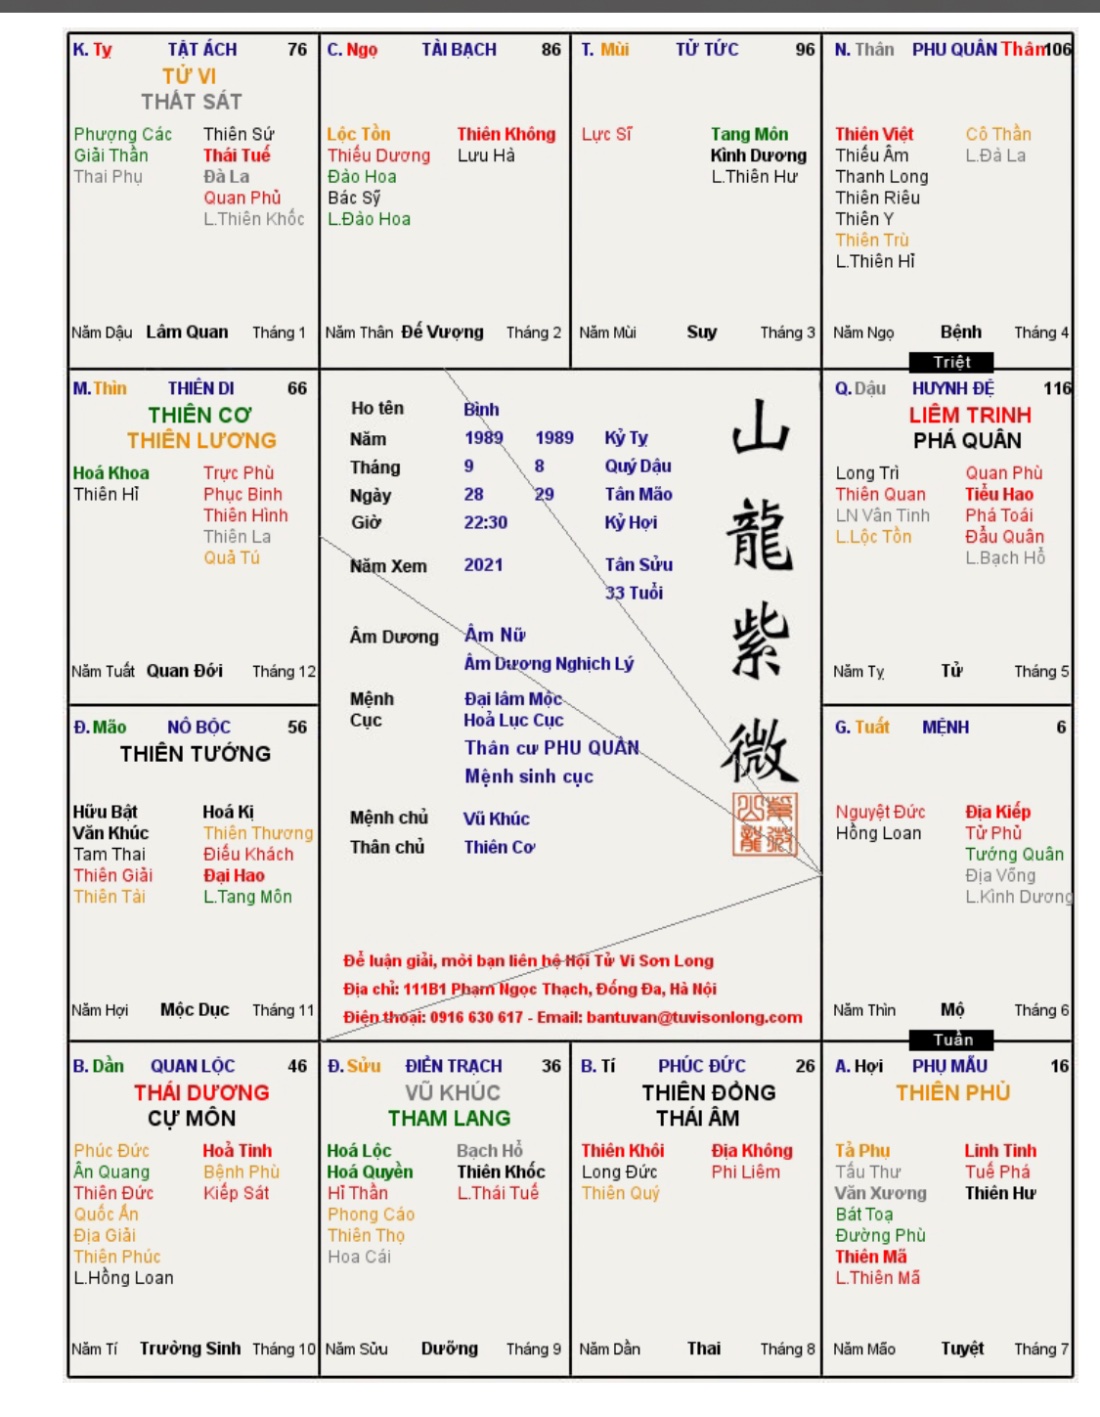 K. Tỵ TẬT ÁCH 76
TỬ VI
THẤT SÁT
Phượng Các Thiên Sứ
Giải Thần Thái Tuế
Thai Phụ Đà La
Quan Phủ
L.Thiên Khốc
Năm Dậu Lâm Quan Tháng 1
C. Ngọ TÀI BẠCH 86
Lộc Tồn Thiên Không
Thiếu Dương Lưu Hà
Đào Hoa
Bác Sỹ
L.Đào Hoa
Năm Thân Đế Vượng Tháng 2
T. Mùi TỬ TỨC 96
Lực Sĩ Tang Môn
Kình Dương
L.Thiên Hư
Năm Mùi Suy Tháng 3
N. Thân PHU QUÂN Thân 106
Thiên Việt Cô Thần
Thiếu Âm L.Đà La
Thanh Long
Thiên Riêu
Thiên Y
Thiên Trù
L.Thiên Hỉ
Năm Ngọ Bệnh Tháng 4
Triệt
M. Thìn THIÊN DI 66
THIÊN CƠ
THIÊN LƯƠNG
Hoá Khoa Trực Phù
Thiên Hỉ Phục Binh
Thiên Hình
Thiên La
Quả Tú
Năm Tuất Quan Đới Tháng 12
Ho tên Bình
Năm 1989 1989 Kỷ Tỵ
Tháng 9 8 Quý Dậu
Ngày 28 29 Tân Mão
Giờ 22:30 Kỷ Hợi
Năm Xem 2021 Tân Sửu
33 Tuổi
Âm Dương Âm Nữ
Âm Dương Nghịch Lý
Mệnh Đại lâm Mộc
Cục Hoả Lục Cục
Thân cư PHU QUÂN
Mệnh sinh cục
Mệnh chủ Vũ Khúc
Thân chủ Thiên Cơ
山
龍
紫
微
Để luận giải, mời bạn liên hệ Hội Tử Vi Sơn Long
Địa chỉ: 111B1 Phạm Ngọc Thạch, Đống Đa, Hà Nội
Điện thoại: 0916 630 617 - Email: bantuvan@tuvisonlong.com
Q. Dậu HUYNH ĐỆ 116
LIÊM TRINH
PHÁ QUÂN
Long Trì Quan Phù
Thiên Quan Tiểu Hao
LN Văn Tinh Phá Toái
L.Lộc Tồn Đẩu Quân
L.Bạch Hổ
Năm Tỵ Tử Tháng 5
Đ. Mão NÔ BỘC 56
THIÊN TƯỚNG
Hữu Bật Hoá Kị
Văn Khúc Thiên Thương
Tam Thai Điếu Khách
Thiên Giải Đại Hao
Thiên Tài L.Tang Môn
Năm Hợi Mộc Dục Tháng 11
G. Tuất MỆNH 6
Nguyệt Đức Địa Kiếp
Hồng Loan Tử Phù
Tướng Quân
Địa Võng
L.Kình Dương
Năm Thìn Mộ Tháng 6
Tuần
B. Dần QUAN LỘC 46
THÁI DƯƠNG
CỰ MÔN
Phúc Đức Hoả Tinh
Ân Quang Bệnh Phù
Thiên Đức Kiếp Sát
Quốc Ấn
Địa Giải
Thiên Phúc
L.Hồng Loan
Năm Tí Trường Sinh Tháng 10
Đ. Sửu ĐIỀN TRẠCH 36
VŨ KHÚC
THAM LANG
Hoá Lộc Bạch Hổ
Hoá Quyền Thiên Khốc
Hỉ Thần L.Thái Tuế
Phong Cáo
Thiên Thọ
Hoa Cái
Năm Sửu Dưỡng Tháng 9
B. Tí PHÚC ĐỨC 26
THIÊN ĐỒNG
THÁI ÂM
Thiên Khôi Địa Không
Long Đức Phi Liêm
Thiên Quý
Năm Dần Thai Tháng 8
A. Hợi PHỤ MẪU 16
THIÊN PHỦ
Tả Phụ Linh Tinh
Tấu Thư Tuế Phá
Văn Xương Thiên Hư
Bát Toạ
Đường Phù
Thiên Mã
L.Thiên Mã
Năm Mão Tuyệt Tháng 7